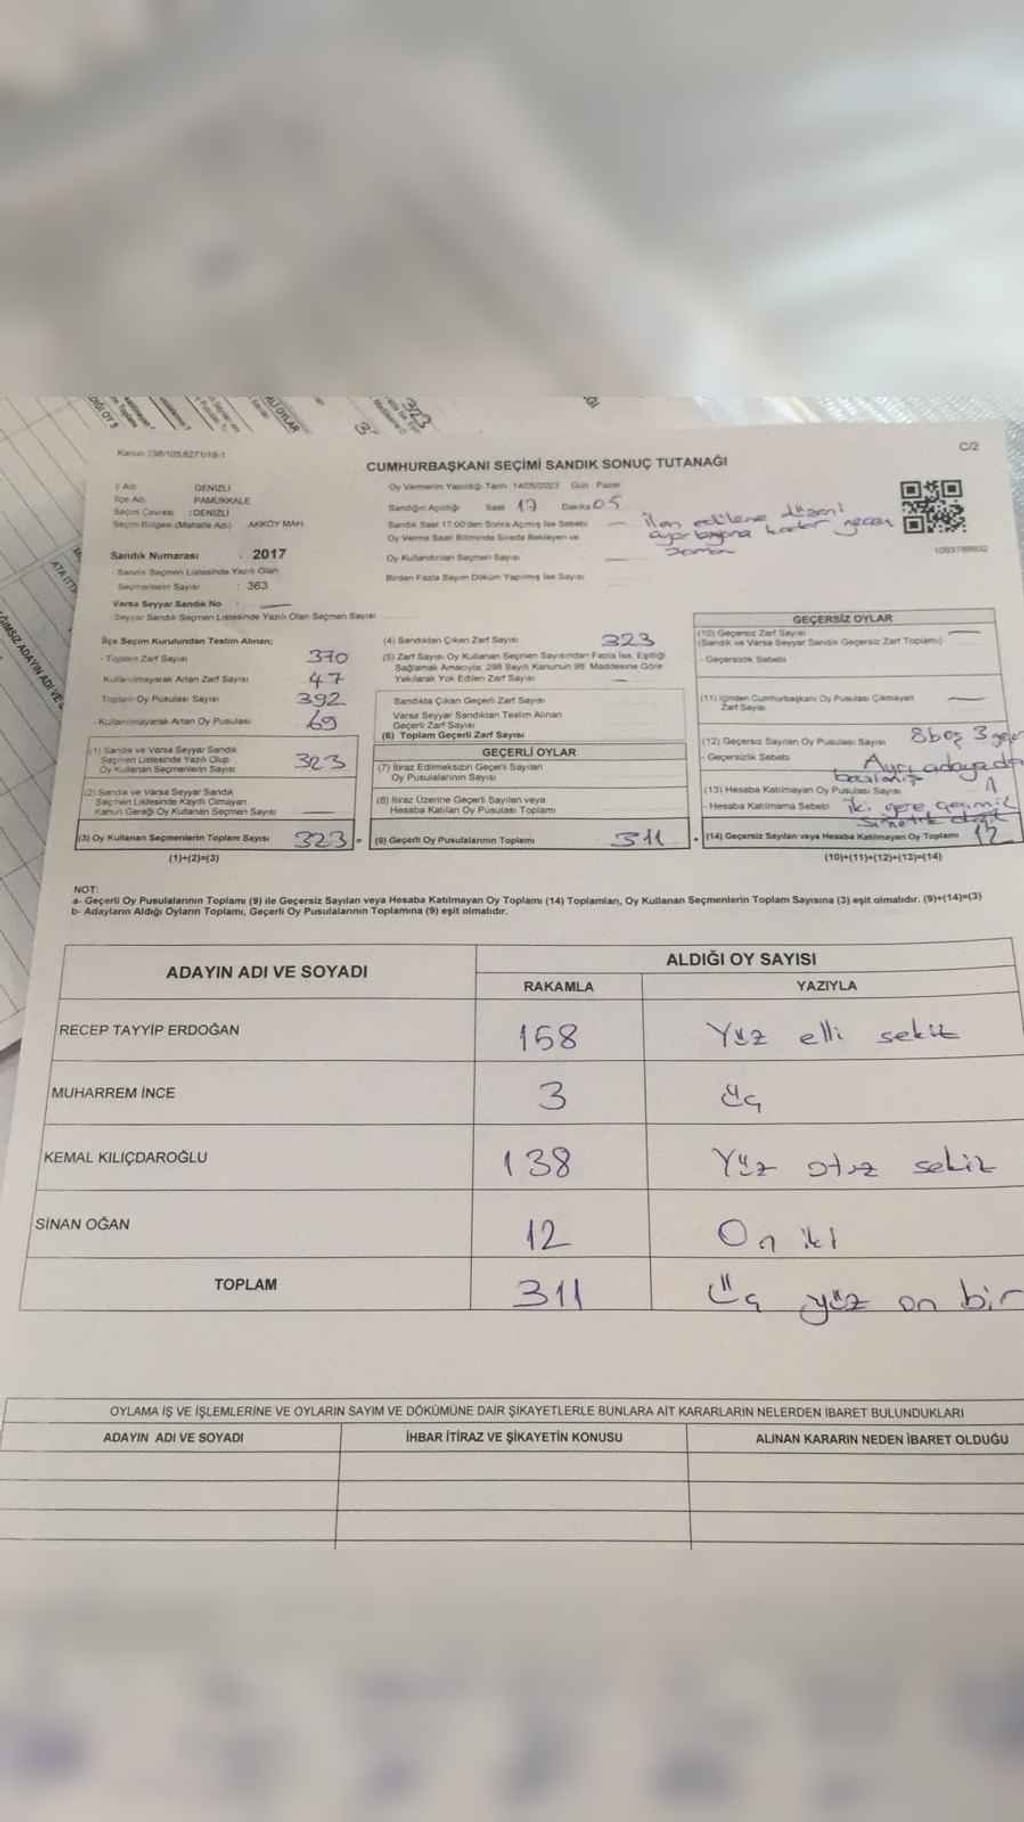 C/2
CUMHURBAŞKANI SEÇİMİ SANDIK SONUÇ TUTANAĞI
İl Adı DENİZLİ
İlçe Adı PAMUKKALE
Seçim Çevresi :DENİZLİ
Seçim Bölgesi (Mahalle Adı) AKKÖY MAH.
Sandık Numarası : 2017
Sandık Seçmen Listesinde Yazılı Olan
Seçmenlerin Sayısı : 363
Varsa Seyyar Sandık No
Seyyar Sandık Seçmen Listesinde Yazılı Olan Seçmen Sayısı
Oy Vermenin Yapıldığı Tarih 14/05/2023 Gün Pazar
Sandığın Açıldığı Saat 17 Dakika 05
Sandık Saat 17:00'den Sonra Açılmış İse Sebebi
Oy Verme Saati Bitiminde Sırada Bekleyen ve
Oy Kullandırılan Seçmen Sayısı
Birden Fazla Sayım Döküm Yapılmış İse Sayısı
kadar geçen
zaman
İlçe Seçim Kurulundan Teslim Alınan;
- Toplam Zarf Sayısı 370
Kullanılmayarak Artan Zarf Sayısı 47
Toplam Oy Pusulası Sayısı 392
- Kullanılmayarak Artan Oy Pusulası 69
(1) Sandık ve Varsa Seyyar Sandık
Seçmen Listesinde Yazılı Olup
Oy Kullanan Seçmenlerin Sayısı 323
(2) Sandık ve Varsa Seyyar Sandık
Seçmen Listesinde Kayıtlı Olmayan
Kanun Gereği Oy Kullanan Seçmen Sayısı
(3) Oy Kullanan Seçmenlerin Toplam Sayısı 323
(1)+(2)=(3)
(4) Sandıktan Çıkan Zarf Sayısı 323
(5) Zarf Sayısı Oy Kullanan Seçmen Sayısından Fazla İse, Eşitliği
Sağlamak Amacıyla; 298 Sayılı Kanunun 98. Maddesine Göre
Yakılarak Yok Edilen Zarf Sayısı
Sandıkta Çıkan Geçerli Zarf Sayısı
Varsa Seyyar Sandıktan Teslim Alınan
Geçerli Zarf Sayısı
(6) Toplam Geçerli Zarf Sayısı
GEÇERLİ OYLAR
(7) İtiraz Edilmeksizin Geçerli Sayılan
Oy Pusulalarının Sayısı
(8) İtiraz Üzerine Geçerli Sayılan veya
Hesaba Katılan Oy Pusulası Toplamı
(9) Geçerli Oy Pusulalarının Toplamı 311
GEÇERSİZ OYLAR
(10) Geçersiz Zarf Sayısı
(Sandık ve Varsa Seyyar Sandık Geçersiz Zarf Toplamı)
- Geçersizlik Sebebi
(11) İçinden Cumhurbaşkanı Oy Pusulası Çıkmayan
Zarf Sayısı
(12) Geçersiz Sayılan Oy Pusulası Sayısı 8boş 3
- Geçersizlik Sebebi
(13) Hesaba Katılmayan Oy Pusulası Sayısı 1
- Hesaba Katılmama Sebebi
(14) Geçersiz Sayılan veya Hesaba Katılmayan Oy Toplamı 12
(10)+(11)+(12)+(13)=(14)
NOT:
a- Geçerli Oy Pusulalarının Toplamı (9) ile Geçersiz Sayılan veya Hesaba Katılmayan Oy Toplamı (14) Toplamları, Oy Kullanan Seçmenlerin Toplam Sayısına (3) eşit olmalıdır. (9)+(14)=(3)
b- Adayların Aldığı Oyların Toplamı, Geçerli Oy Pusulalarının Toplamına (9) eşit olmalıdır.
ADAYIN ADI VE SOYADI
ALDIĞI OY SAYISI
RAKAMLA YAZIYLA
RECEP TAYYİP ERDOĞAN 158 Yüz elli sekiz
MUHARREM İNCE 3 Üç
KEMAL KILIÇDAROĞLU 138 Yüz otuz sekiz
SİNAN OĞAN 12 On iki
TOPLAM 311 Üç yüz on bir
OYLAMA İŞ VE İŞLEMLERİNE VE OYLARIN SAYIM VE DÖKÜMÜNE DAİR ŞİKAYETLERLE BUNLARA AİT KARARLARIN NELERDEN İBARET BULUNDUKLARI
ADAYIN ADI VE SOYADI İHBAR İTİRAZ VE ŞİKAYETİN KONUSU ALINAN KARARIN NEDEN İBARET OLDUĞU